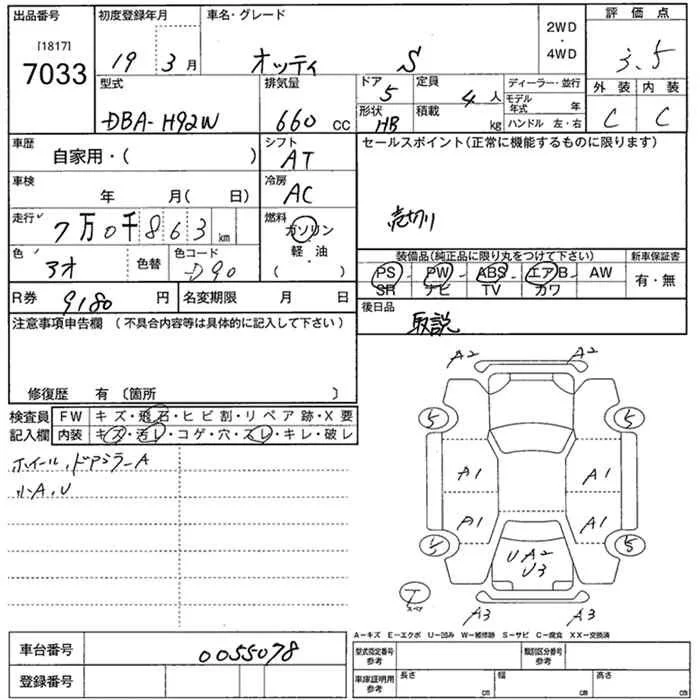 出品番号
[1817]
7033
初度登録年月
19 3月
車名・グレード
オッティ S
2WD
・
4WD
評価点
3.5
外装 内装
C C
型式
DBA-H92W
排気量
660 CC
ドア
5
定員
4人
形状
HB
積載
kg
ディーラー・並行
モデル年式 年
ハンドル 左・右
車歴
自家用・( )
シフト
AT
セールスポイント(正常に機能するものに限ります)
売切り
車検
年 月( 日)
冷房
AC
走行
7万0千863km
燃料
ガソリン
・
軽・油
( )
色
アオ
色替
色コード
D90
装備品(純正品に限り丸をつけて下さい)
PS PW ABS エアB AW
SR ナビ TV カワ
新車保証書
有・無
R券 9180円
名変期限 月 日
後日品
取説
注意事項申告欄 (不具合内容等は具体的に記入して下さい)
修復歴 有〔箇所 〕
検査員記入欄
FW キズ・飛石・ヒビ割・リペア跡・X要
内装 キズ・汚レ・コゲ・穴・スレ・キレ・破レ
ホイール、ドアミラーA
小A、U
A2 A2
5 5
A1 A1
A1 A1
5 5
UA2
U3
T
スペア
A3 A3
A-キズ E-エクボ U-凹み W-補修跡 S-サビ C-腐食 XX-交換済
車台番号
0055078
登録番号
型式指定番号
参考
類別区分番号
参考
車庫証明用
参考
長さ cm
幅 cm
高さ cm